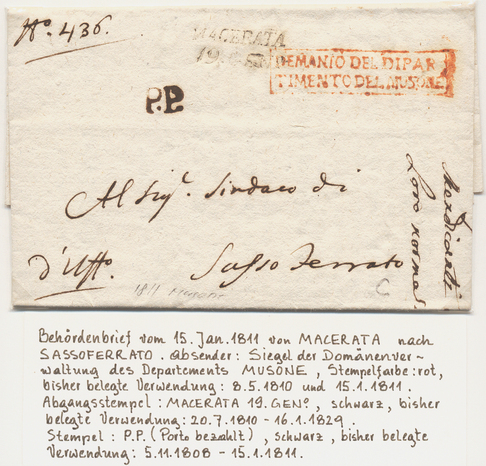 No. 436.
MACERATA
19. GEN
DEMANIO DEL DIPAR
TIMENTO DEL MUSONE
P.P.
Al Sigr. Sindaco di
d'Uffo.
Sasso Ferrato
Mendicanti
Loro norme
C
1811 Musone
Behördenbrief vom 15. Jan. 1811 von MACERATA nach
SASSOFERRATO. Absender: Siegel der Domänenver-
waltung des Departements MUSONE, Stempelfarbe: rot,
bisher belegte Verwendung: 8.5.1810 und 15.1.1811.
Abgangsstempel: MACERATA 19. GENº, schwarz, bisher
belegte Verwendung: 20.7.1810 - 16.1.1829.
Stempel: P.P. (Porto bezahlt), schwarz, bisher belegte
Verwendung: 5.11.1808 - 15.1.1811.